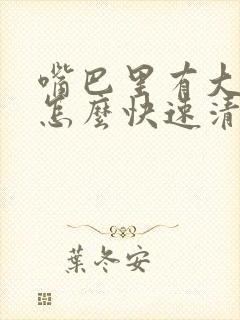 嘴巴里有大
怎麼快速清
葉冬安